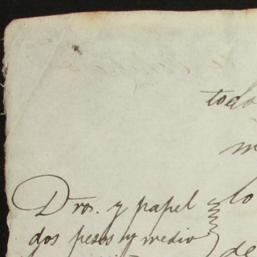 todo
Dros. y papel
lo
dos pesos y medio
de